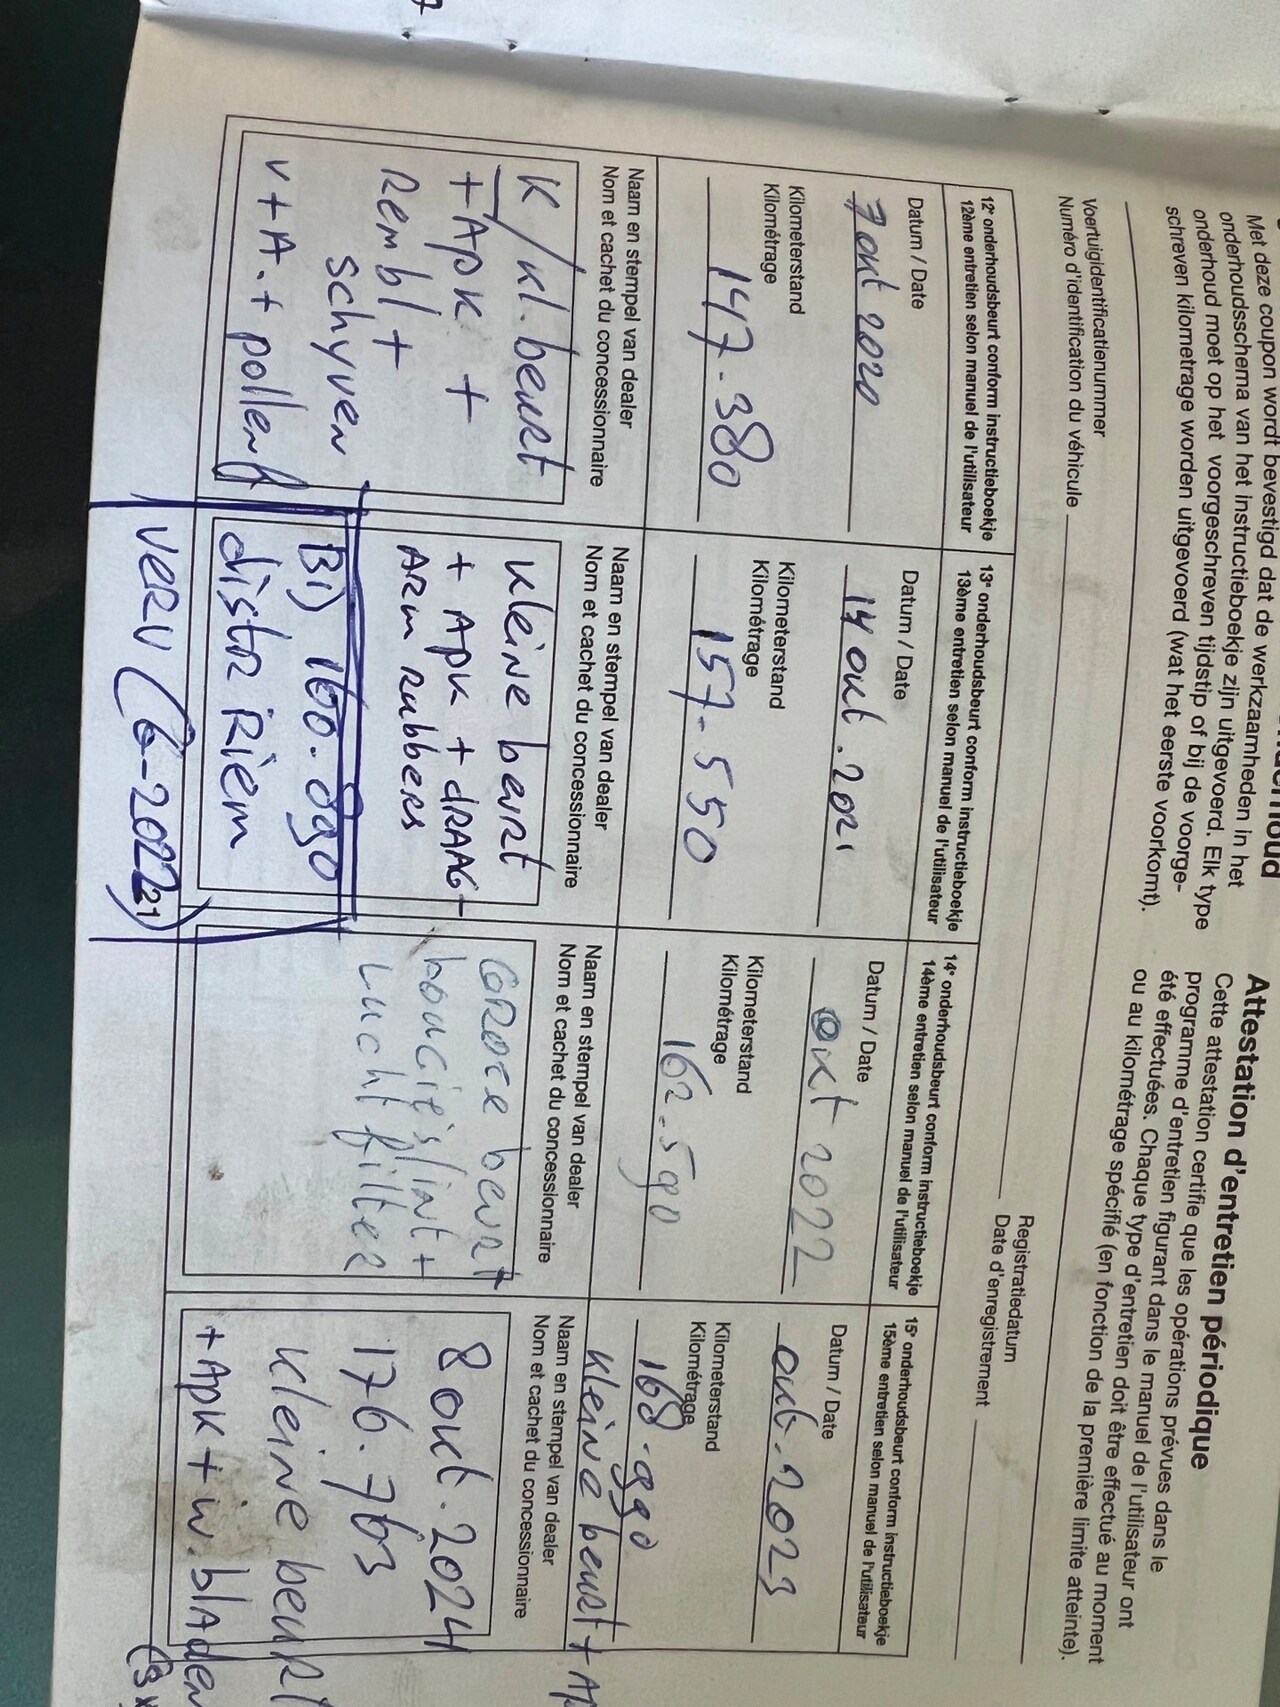 Met deze coupon wordt bevestigd dat de werkzaamheden in het
onderhoudsschema van het instructieboekje zijn uitgevoerd. Elk type
onderhoud moet op het voorgeschreven tijdstip of bij de voorge-
schreven kilometrage worden uitgevoerd (wat het eerste voorkomt).
Attestation d'entretien périodique
Cette attestation certifie que les opérations prévues dans le
programme d'entretien figurant dans le manuel de l'utilisateur ont
été effectuées. Chaque type d'entretien doit être effectué au moment
ou au kilométrage spécifié (en fonction de la première limite atteinte).
Voertuigidentificatienummer
Numéro d'identification du véhicule
Registratiedatum
Date d'enregistrement
12e onderhoudsbeurt conform instructieboekje
12ème entretien selon manuel de l'utilisateur
Datum / Date
7 okt 2020
Kilometerstand
Kilométrage
147-380
Naam en stempel van dealer
Nom et cachet du concessionnaire
K/kl. beurt
+ APK +
Rembl +
schyven
v+A.+ pollenf
13e onderhoudsbeurt conform instructieboekje
13ème entretien selon manuel de l'utilisateur
Datum / Date
14 okt. 2021
Kilometerstand
Kilométrage
157-550
Naam en stempel van dealer
Nom et cachet du concessionnaire
kleine beurt
+ APK + DRAAG-
ARM Rubbers
Bij 160.090
distR Riem
VERV (6-2022)
21
14e onderhoudsbeurt conform instructieboekje
14ème entretien selon manuel de l'utilisateur
Datum / Date
okt 2022
Kilometerstand
Kilométrage
162.590
Naam en stempel van dealer
Nom et cachet du concessionnaire
GROTE beurt
bougie's/int +
Lucht filter
15e onderhoudsbeurt conform instructieboekje
15ème entretien selon manuel de l'utilisateur
Datum / Date
okt. 2023
Kilometerstand
Kilométrage
168.990
kleine beurt +
Naam en stempel van dealer
Nom et cachet du concessionnaire
8 okt. 2024
176.763
kleine beurt
+ APK + w. bladen